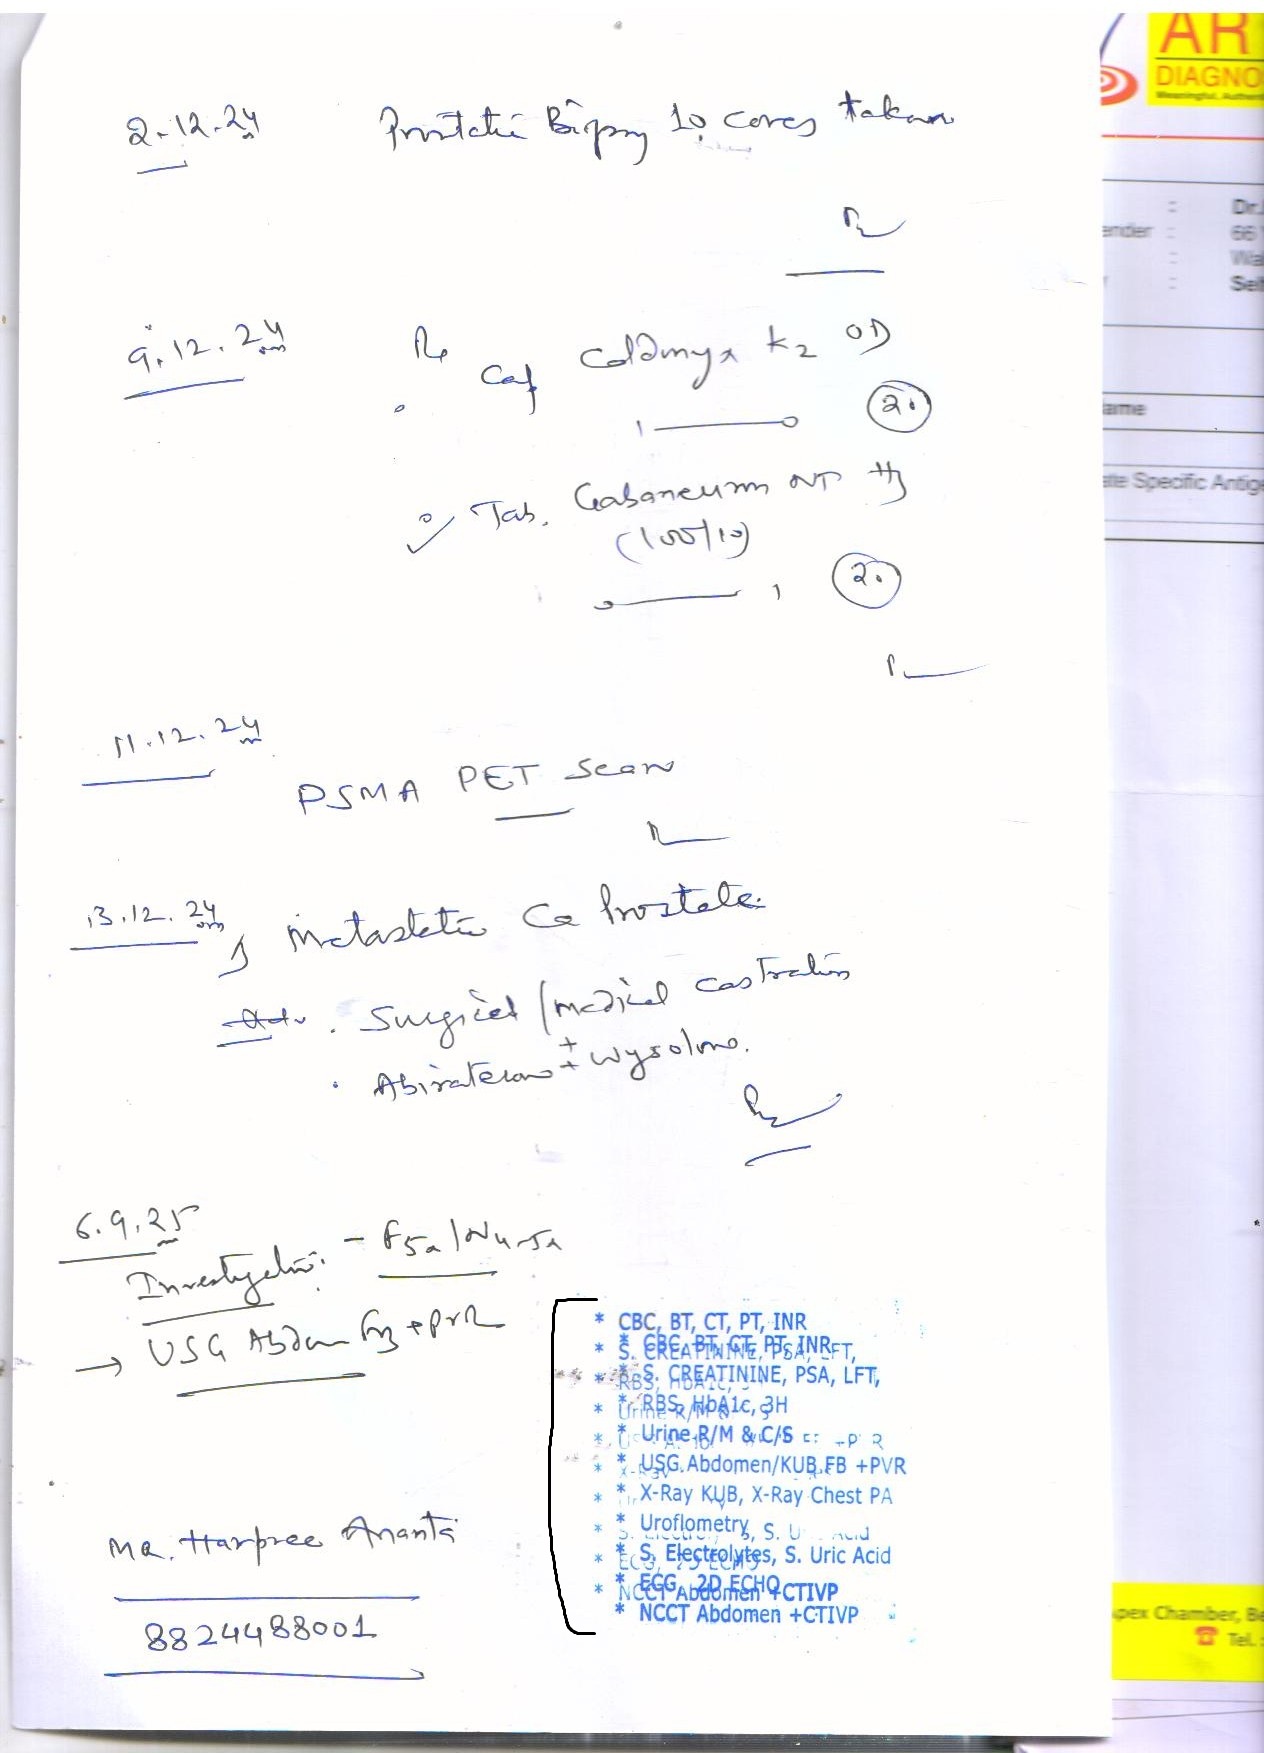 2.12.24 Prostatic Biopsy 10 cores taken
9.12.24
Cap Coldmyx K2 OD
1
Tab. Gabaneuron NT
(100/10)
1
11.12.24
PSMA PET Scan
13.12.24
Metastatic Ca Prostate
Adv. Surgical/medical castration
. Abiraterone ± Wysolone.
6.9.25
Investigation: -
→ USG Abdomen + PVR
* CBC, BT, CT, PT, INR
* CBC, BT, CT, PT, INR
* S. CREATININE, PSA, LFT,
* S. CREATININE, PSA, LFT,
* RBS, HbA1c, 3H
* Urine R/M & C/S
* USG.Abdomen/KUB,FB +PVR
* X-Ray KUB, X-Ray Chest PA
* Uroflometry
* S. Electrolytes, S. Uric Acid
* ECG, 2D ECHO
NCCT Abdomen +CTIVP
* NCCT Abdomen +CTIVP
Mr. Harpree Ananta
8824488001
AR
DIAGNO
Dr.
ender : 66
:
: Self
ame
ate Specific Antig
pex Chamber, Be
☎ Tel. :